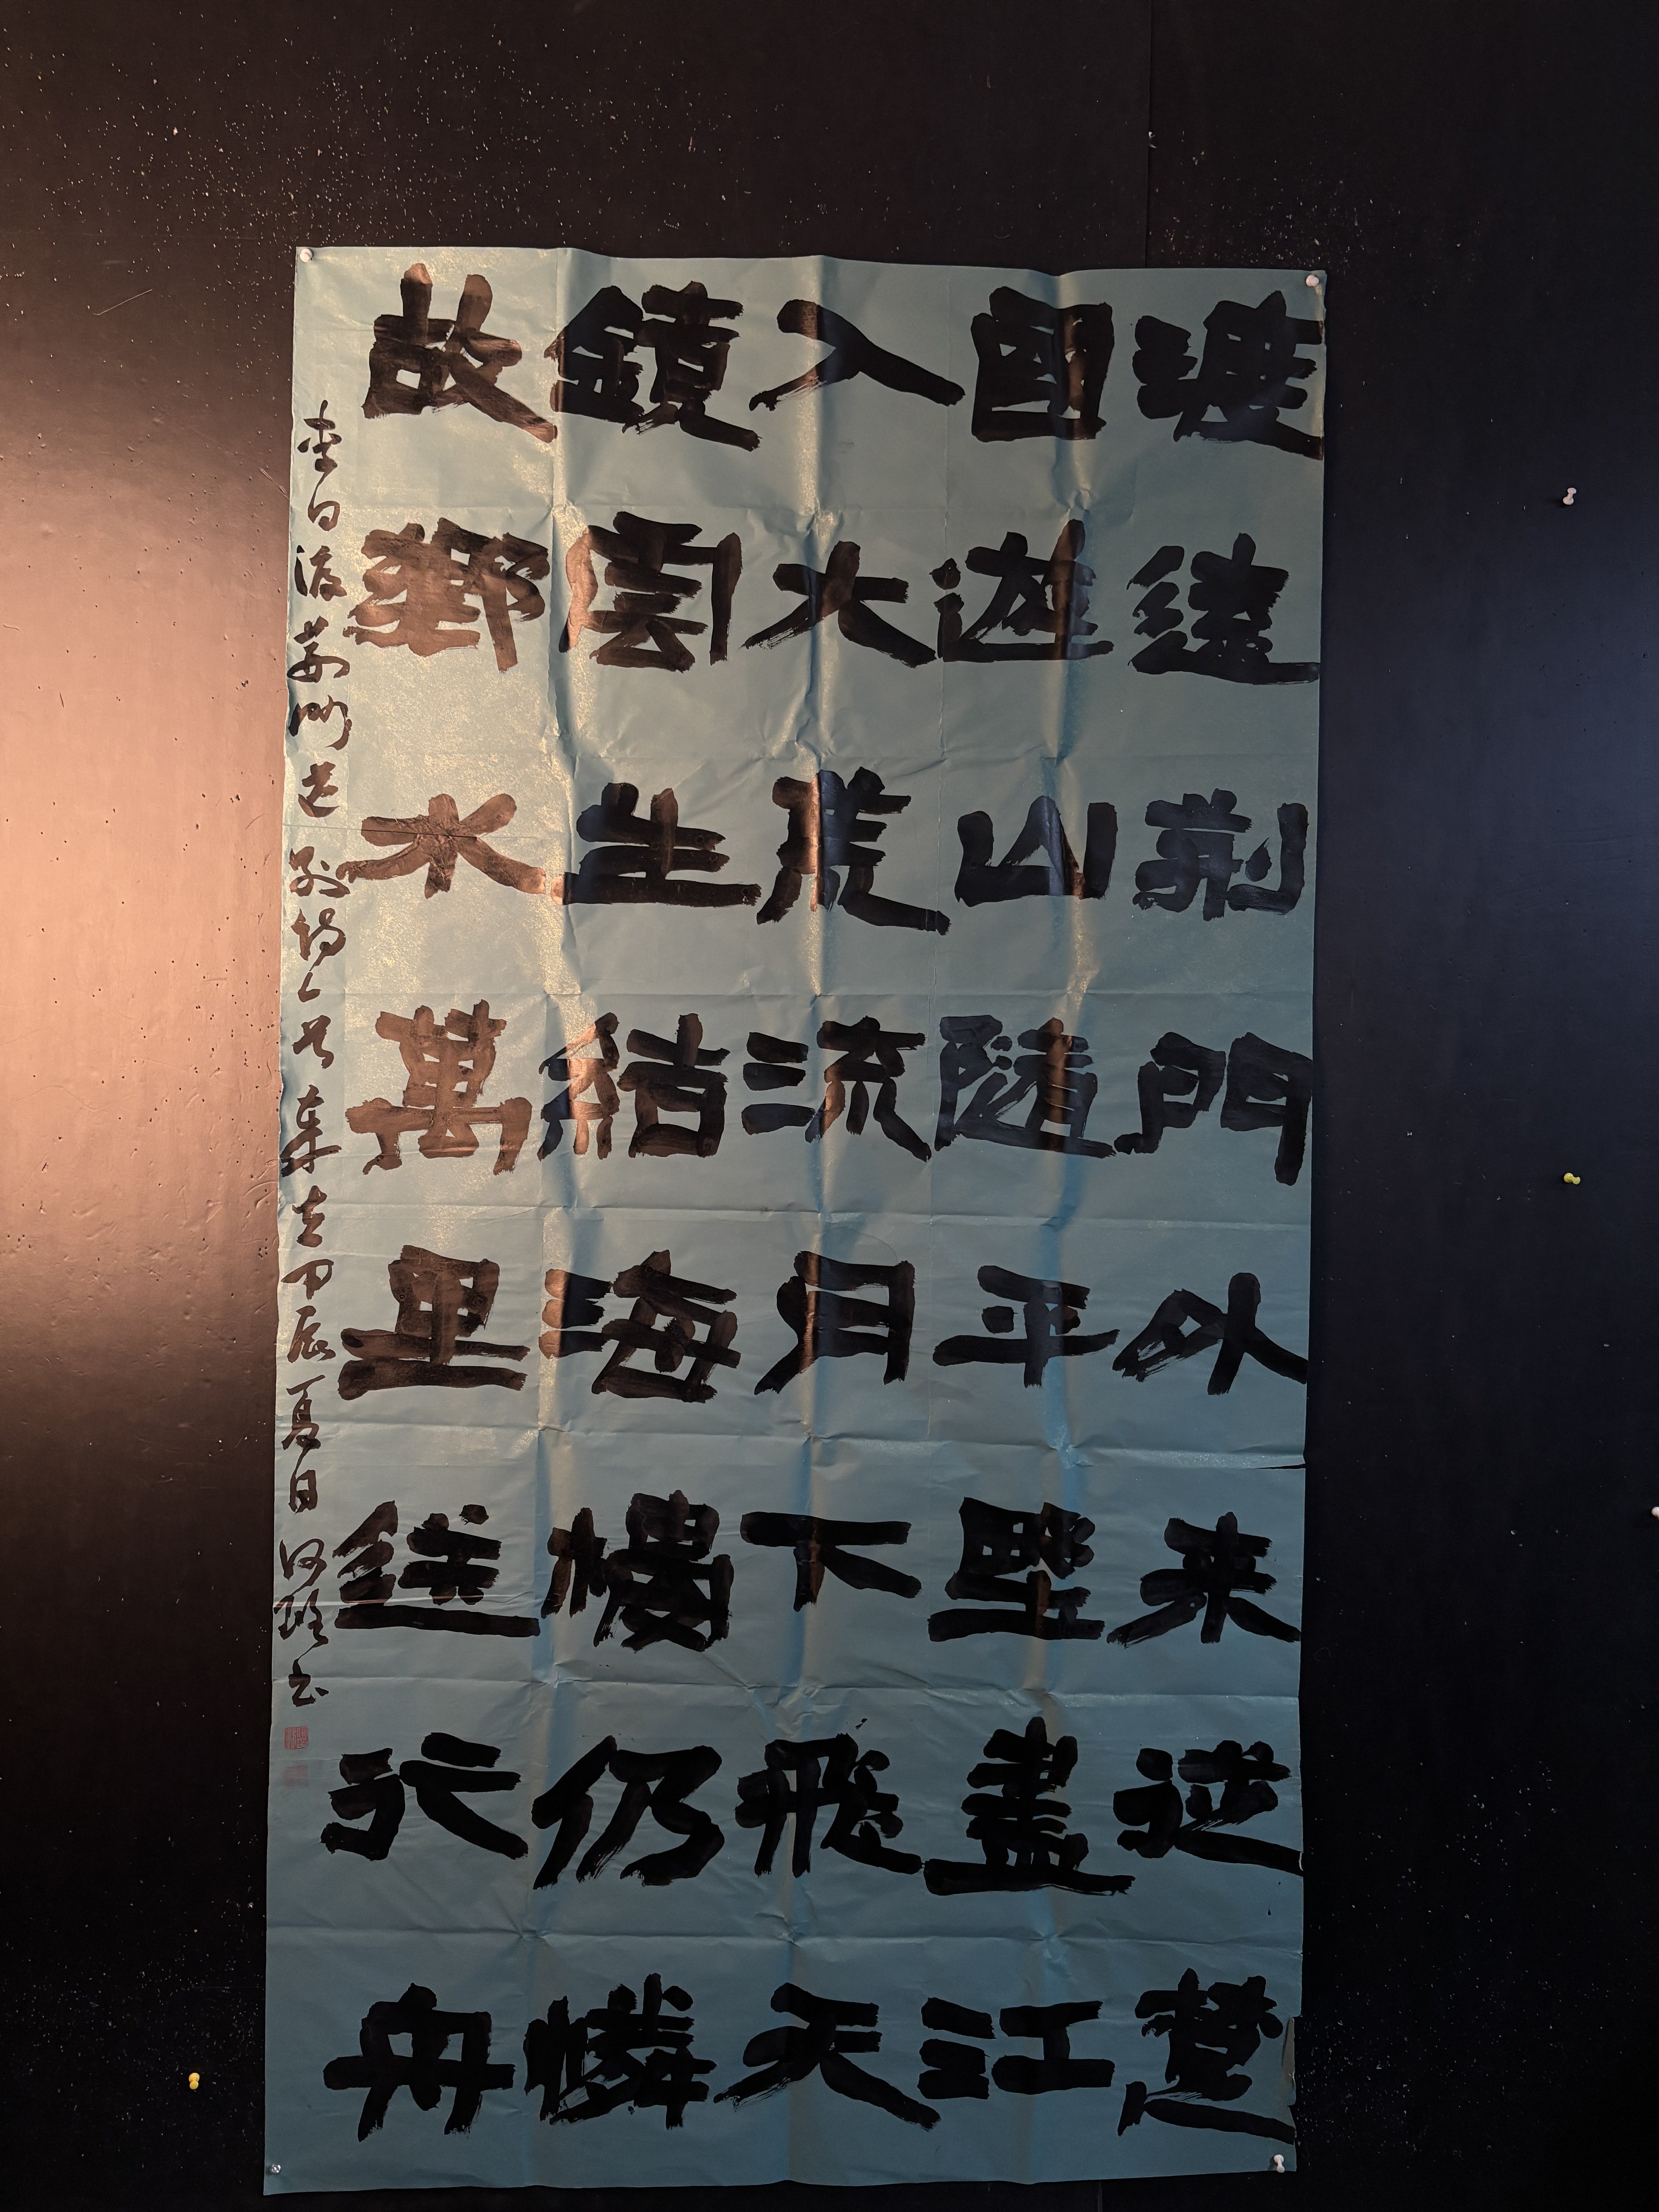 渡遠荊門外来從楚
國遊山隨平野盡江
入大荒流月下飛天
鏡雲生結海樓仍憐
故鄉水萬里送行舟
李白渡荊門送別詩一首 甲辰夏日 书